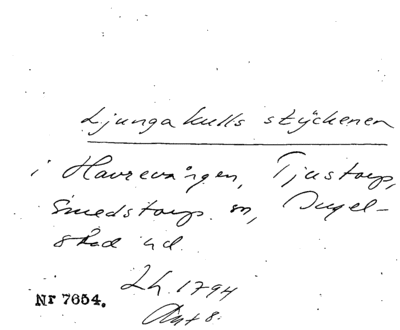 Ljungakulls styckenen
i Havrevången, Tjustorp,
Smedstorps sn, Ingel-
stad hd.
Lh. 1794
Akt 8.
Nr 7654.